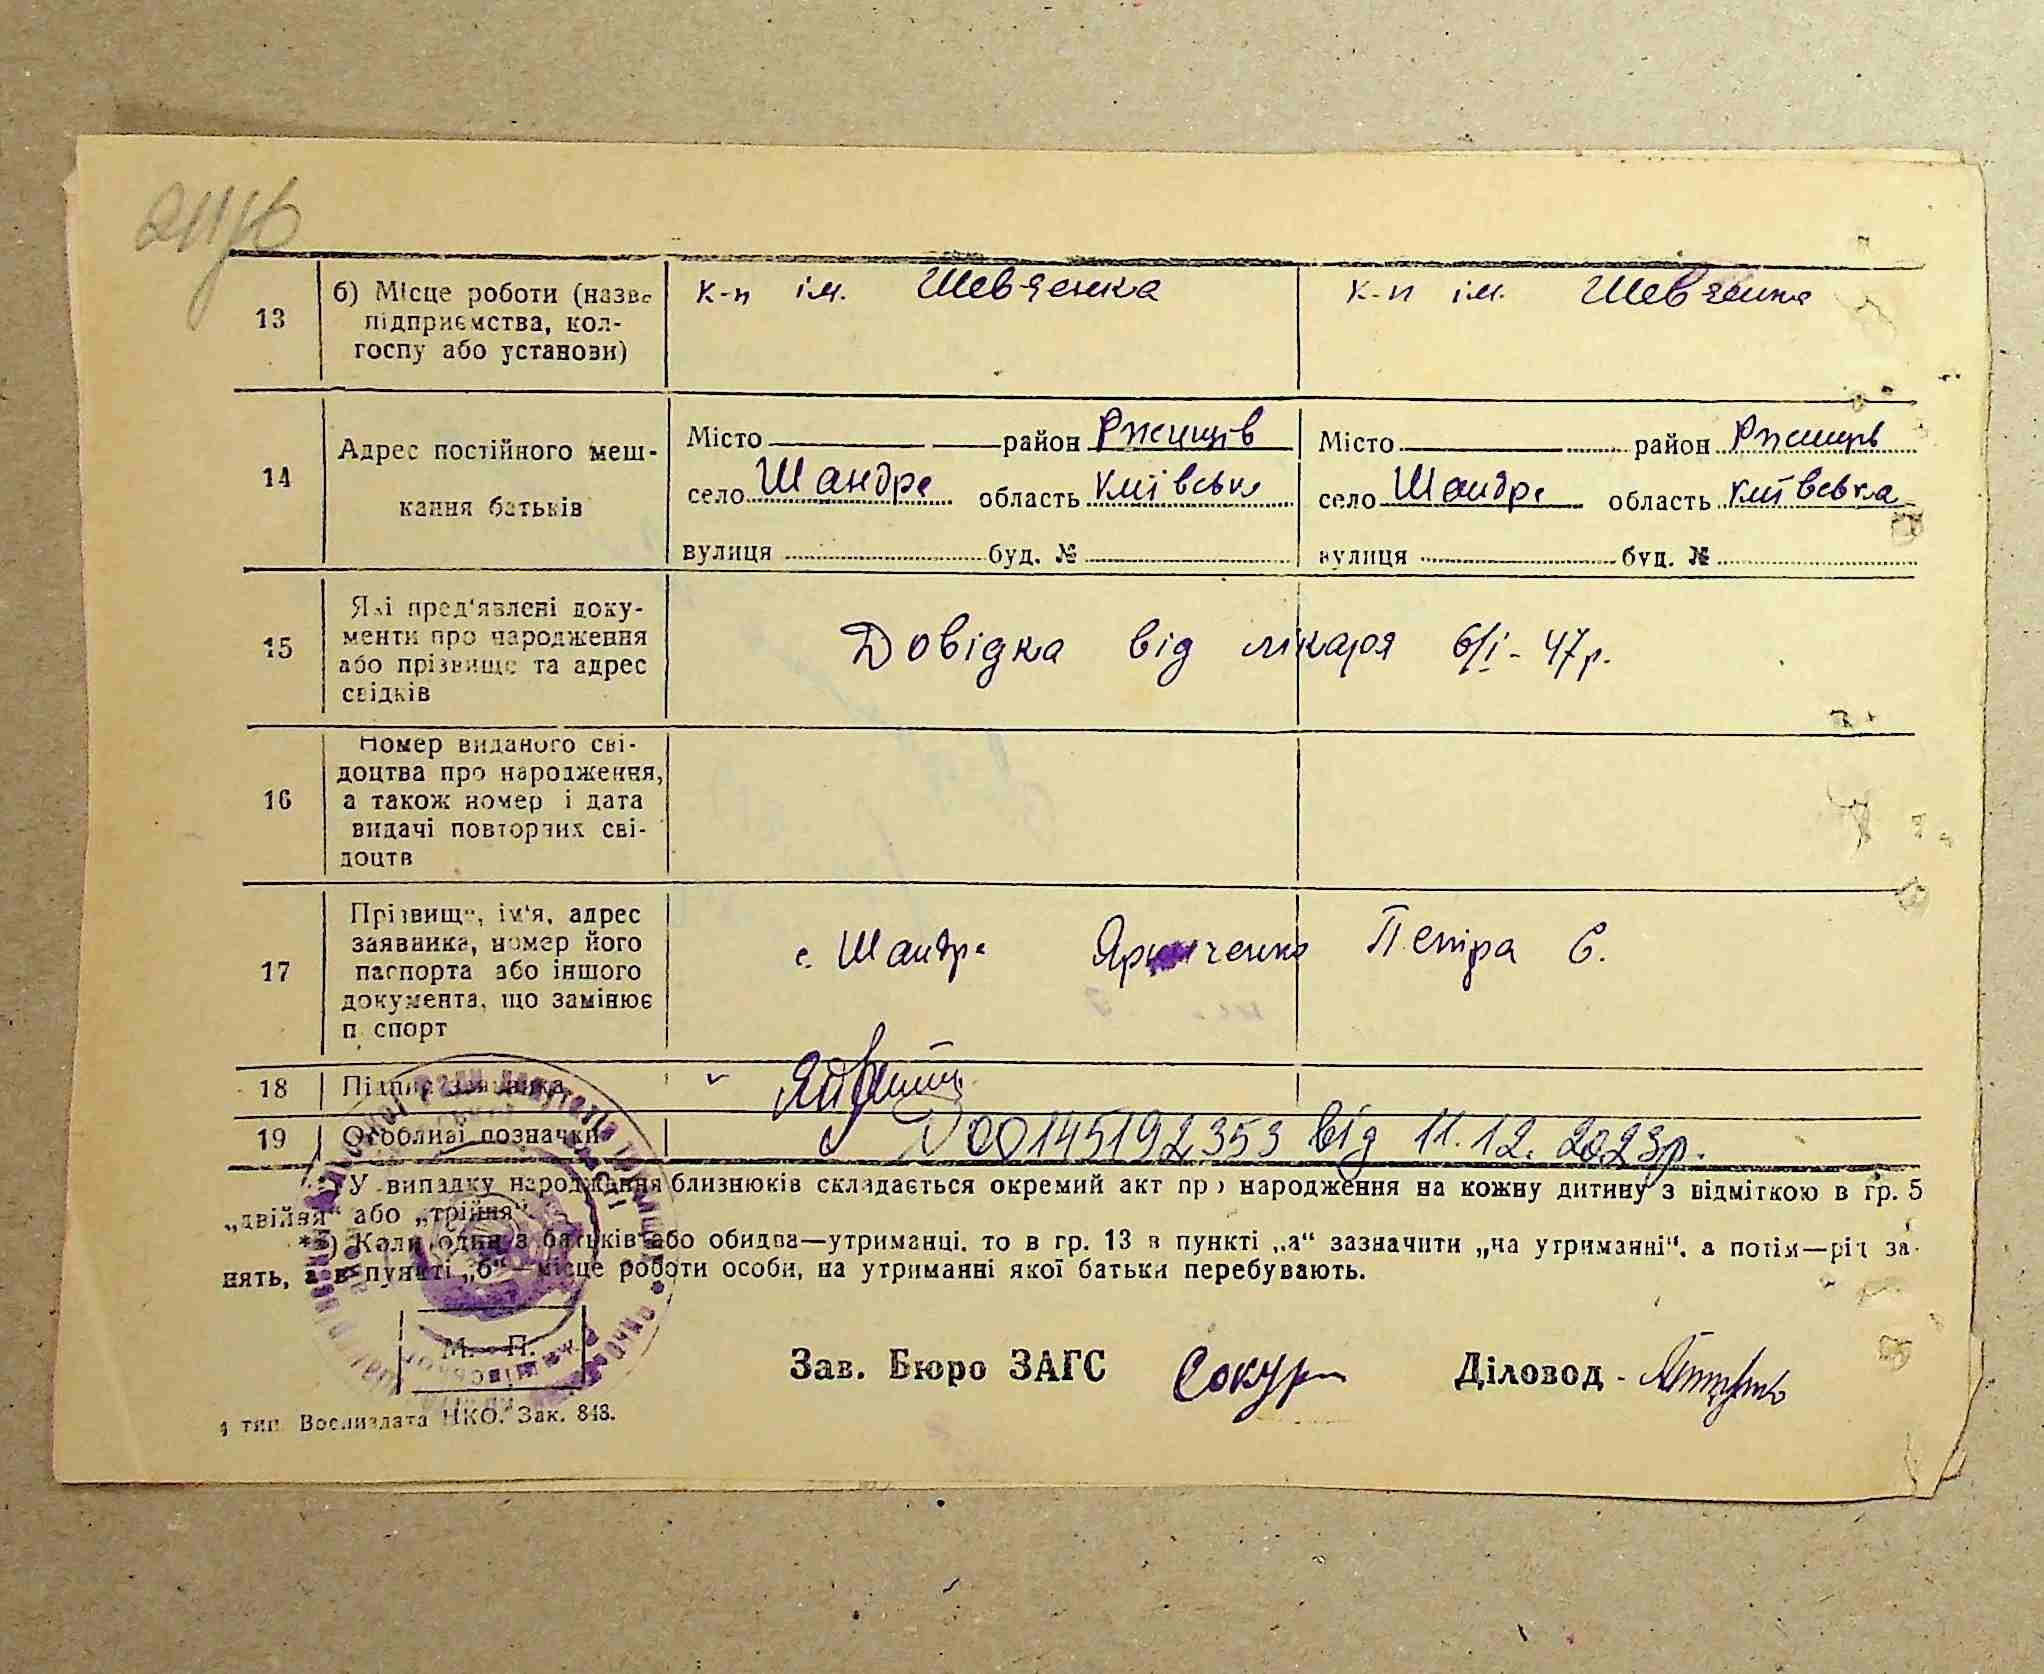 13
б) Місце роботи (назва
підприємства, кол-
госпу або установи)
к-п ім. Шевченка
к-п ім. Шевченка
14
Адрес постійного меш-
кання батьків
Місто район Ржищів
село Шандра область Київська
вулиця буд. №
Місто район Ржищів
село Шандра область Київська
вулиця буд. №
15
Які пред'явлені доку-
менти про народження
або прізвище та адрес
свідків
Довідка від лікаря 6/I-47р.
16
Номер виданого сві-
доцтва про народження,
а також номер і дата
видачі повторних сві-
доцтв
17
Прізвище, ім'я, адрес
заявника, номер його
паспорта або іншого
документа, що замінює
п спорт
с. Шандра Петра Є.
18
Підпис заявника
19
Особливі позначки
00145192353 від 11.12.2023р.
У випадку народження близнюків складається окремий акт про народження на кожну дитину з відміткою в гр. 5
„двійня" або „трійня".
**) Коли один з батьків або обидва—утриманці, то в гр. 13 в пункті „а" зазначити „на утриманні", а потім—рід за-
нять, а в пункті „б" місце роботи особи, на утриманні якої батьки перебувають.
М. П.
Зав. Бюро ЗАГС
Діловод -
4 тип. Воениздата НКО. Зак. 848.